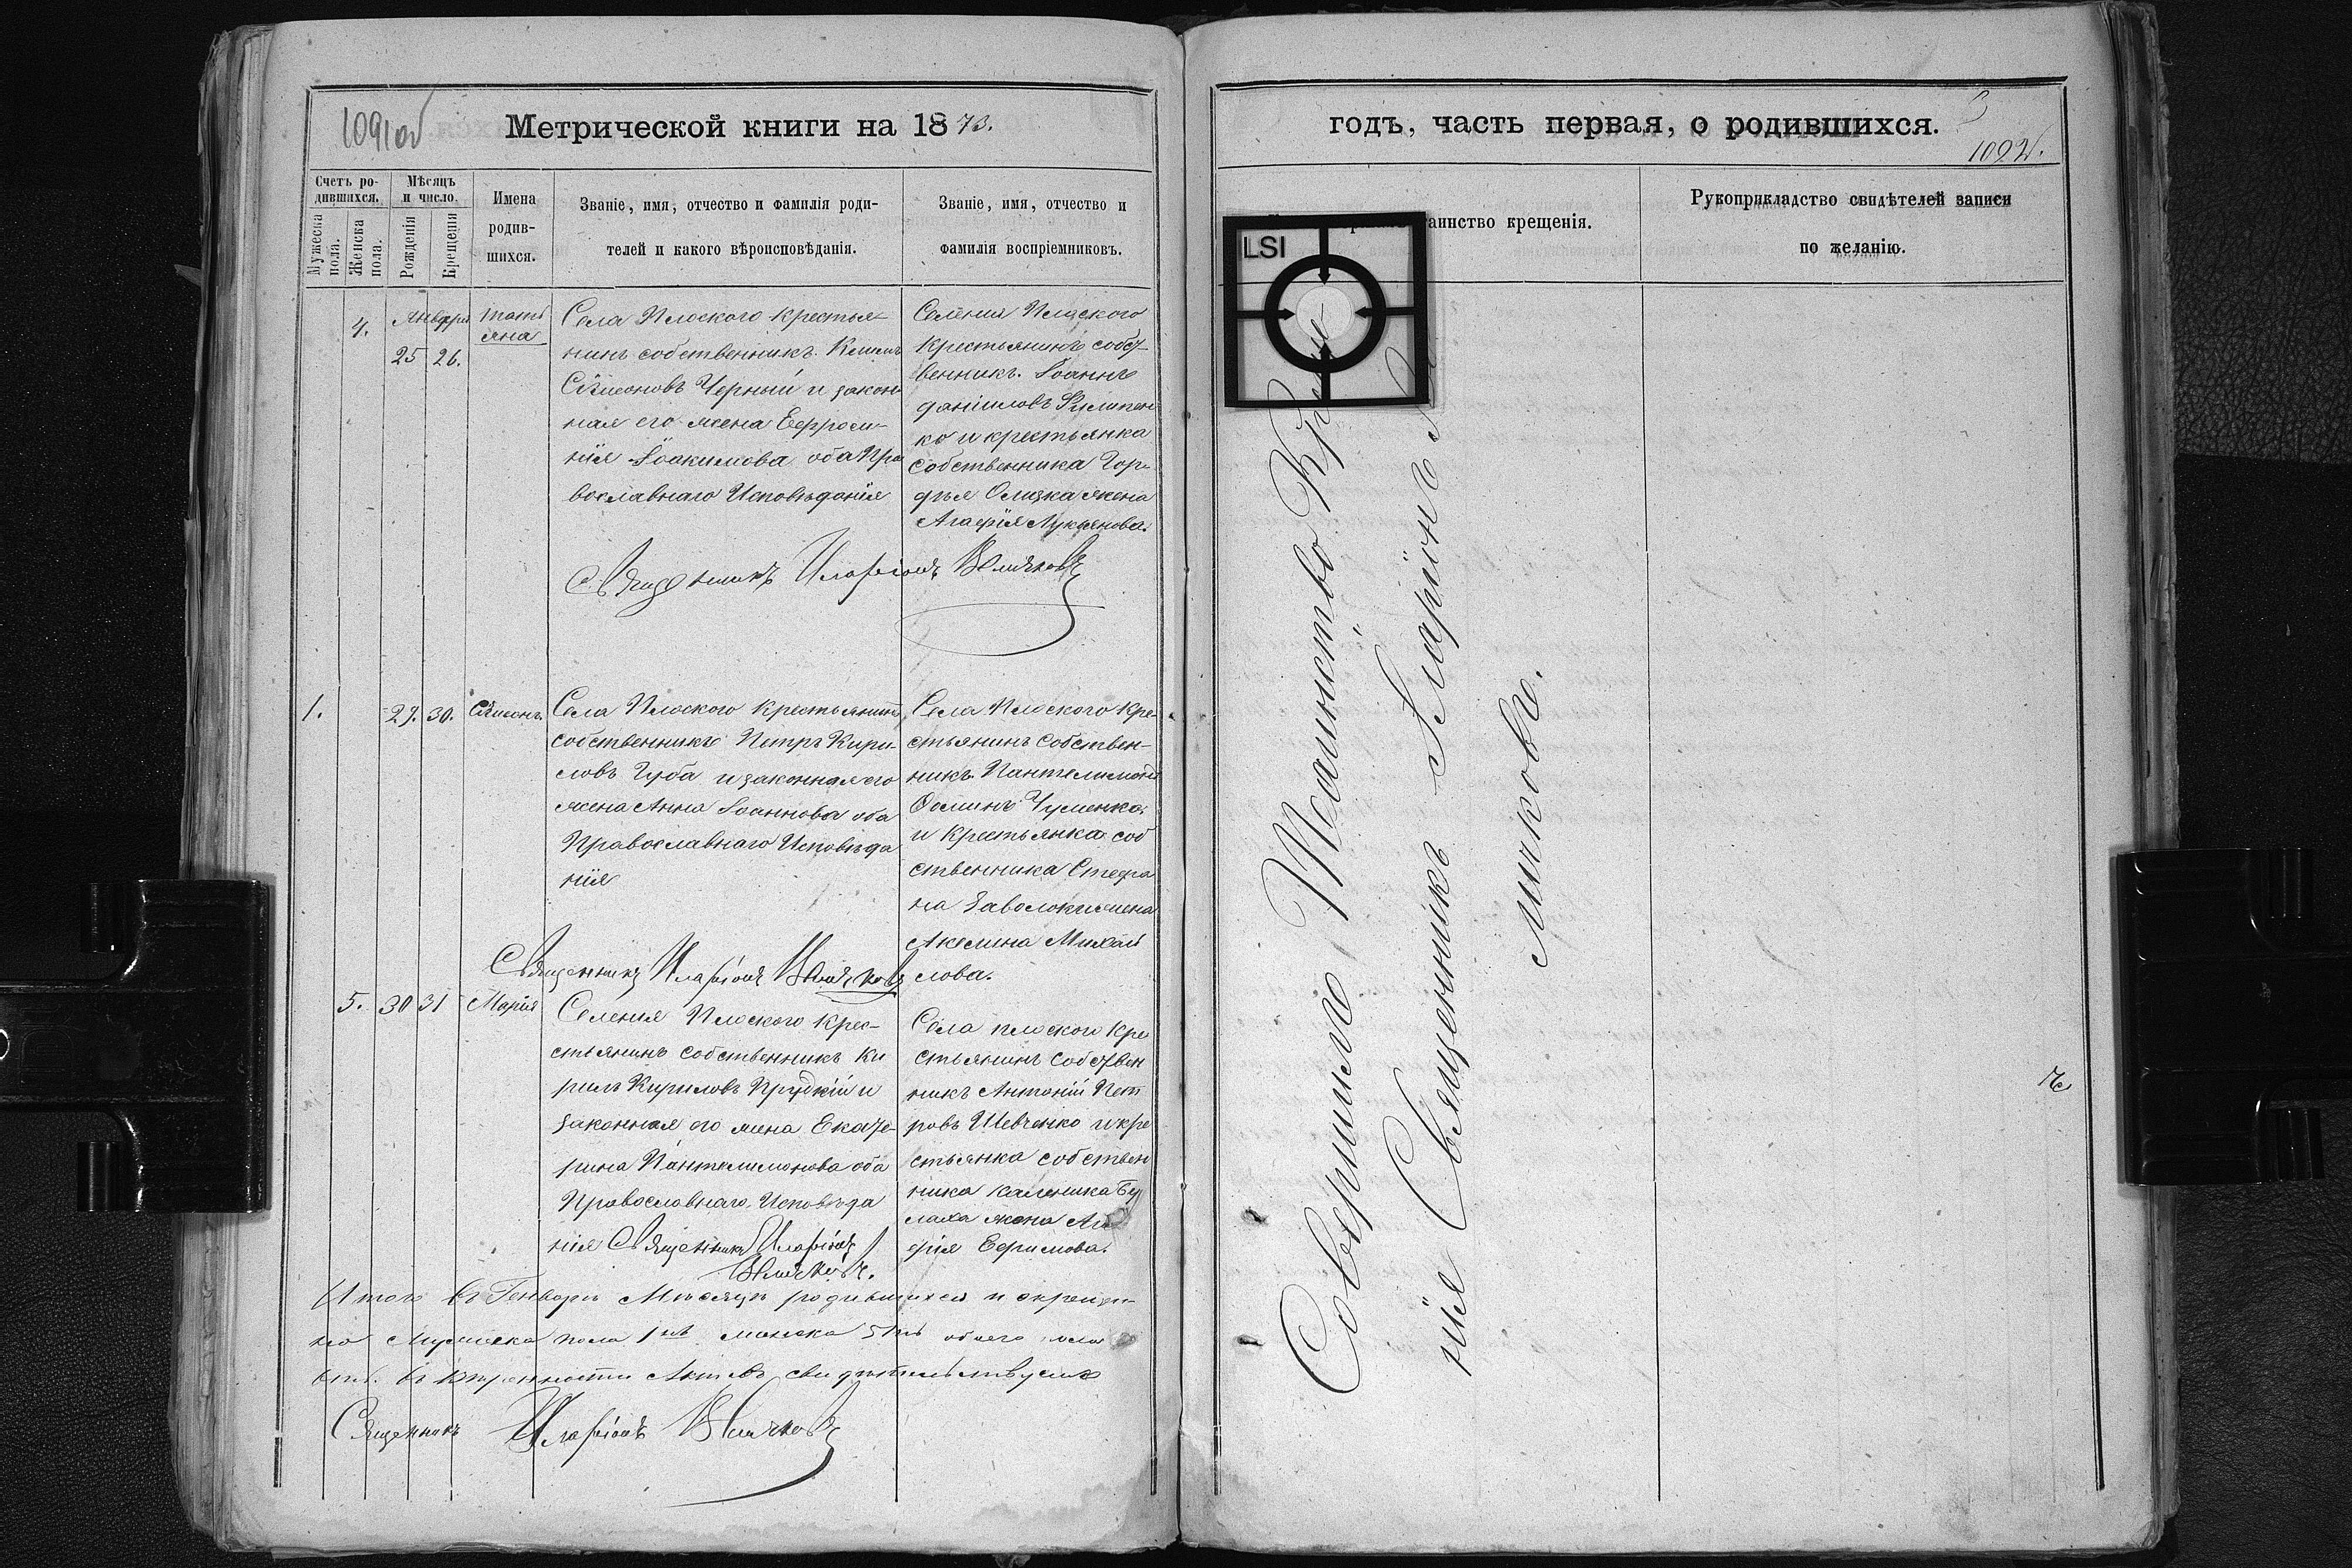 1091об
Метрической книги на 1873.
Счетъ ро-
дившихся.
Мужеска
пола.
Женска
пола.
Мѣсяцъ
и число.
Рожденія
Крещенія
Имена
родив-
шихся.
Званіе, имя, отчество и фамилія роди-
телей и какого вѣроисповѣданія.
Званіе, имя, отчество и
фамилія воспріемниковъ.
4.
Января
25 26.
Тать
яна
Села Плоского крестья-
нинъ собственникъ Климъ
Симеоновъ Черный и закон
ная его жена Евфроси-
нія Іоакимова оба Пра
вославнаго Исповѣданія
Селенія Плоского
Крестьянинъ собст
венникъ. Іоаннъ
Даніиловъ Филипен
ко и крестьянка
собственника Гор-
дѣя Олизка жена
Агафія Лукіянова.
Священникъ Иларіонъ Величковъ
1.
29. 30.
Симеонъ.
Села Плоского Крестьянинъ
собственникъ Петръ Кири-
ловъ Губа и законная его
жена Анна Іоаннова оба
Православнаго Исповѣда
нія
Села Плоского Кре-
стьянинъ Собствен-
никъ Пантелимонъ
Ѳоминъ Чуменко
и Крестьянка соб
ственника Стефа
на жена
Акелина Михаи
лова.
Священникъ Иларіонъ Величковъ
5. 30 31
Марія
Селенія Плоского Крес-
стьянинъ собственникъ Ки
рилъ Кириловъ и
законная его жена Екате-
рина Пантелимонова оба
Православнаго Исповѣда
нія Священникъ Иларіонъ
Величковъ.
Села плоского Кре
стьянинъ Собствен
никъ Антоній Пет
ровъ Шевченко и кре
стьянка собствен
ника Каленика Бу
лаха жена
фія Ефимова.
Итого въ Генварѣ Мѣсяцѣ родившихся и окрещен-
но Мужеска пола 1нъ женска 5ть обоего пола
6ть. Въ вѣрности Актовъ свидѣтельствуемъ
Священникъ Иларіонъ Величковъ
годъ, часть первая, о родившихся.
3
1092.
LSI
таинство крещенія.
Рукоприкладство свидѣтелей записи
по желанію.
Совершилъ Таинство Креще
нія Священникъ Иларіонъ
личковъ.